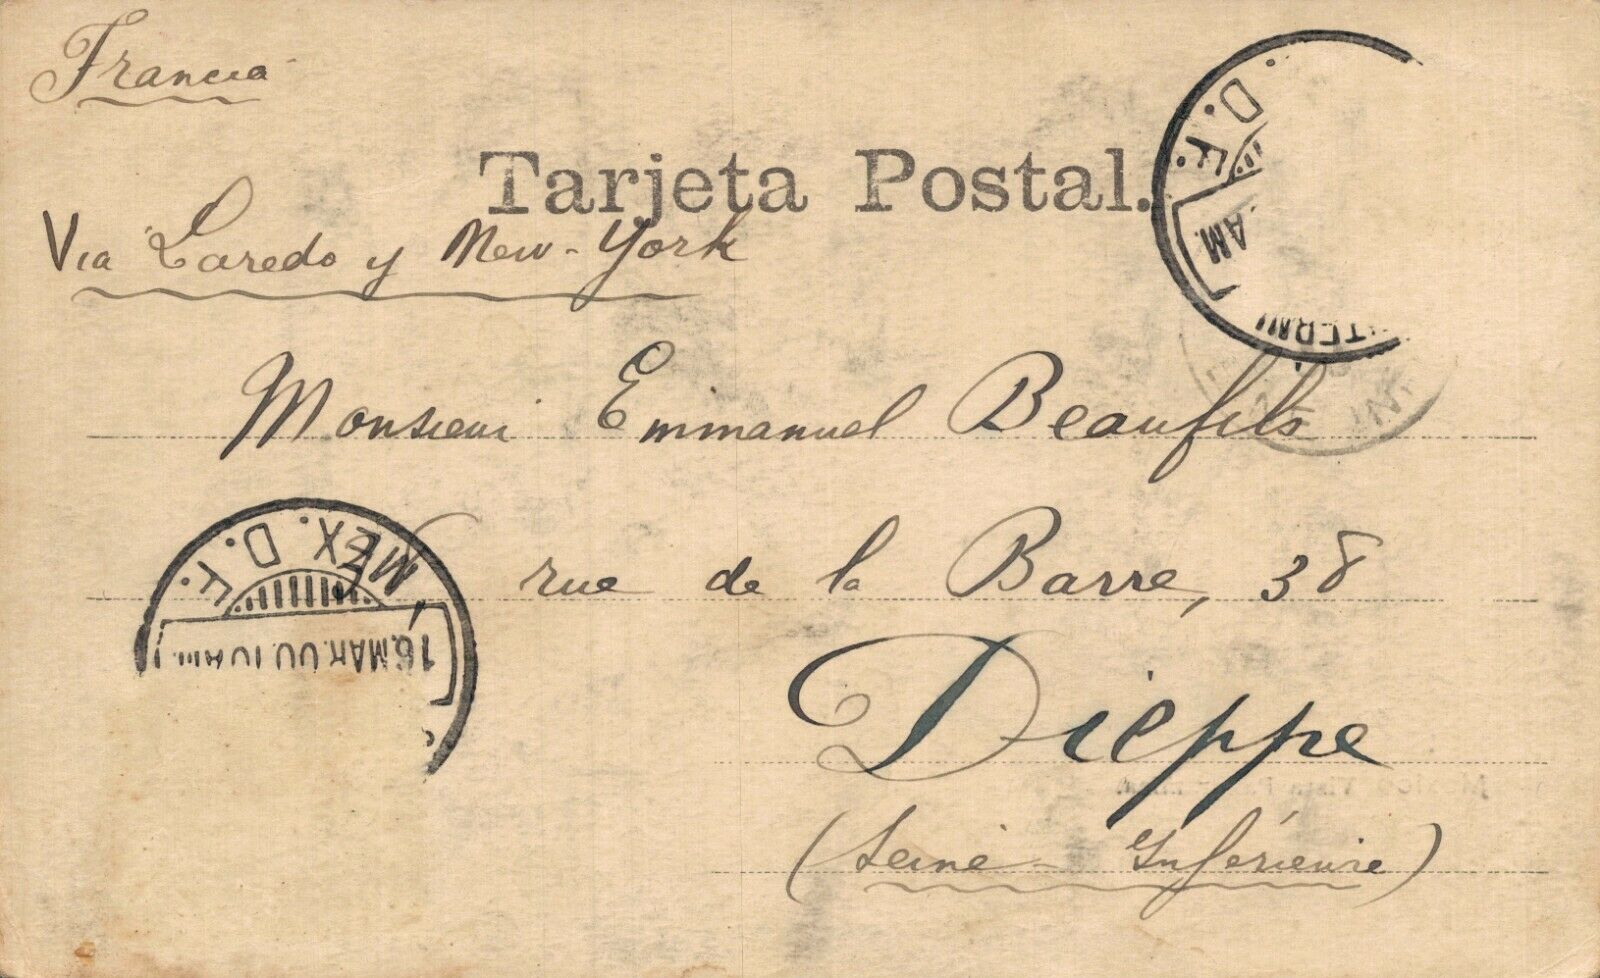 Francia
Tarjeta Postal.
Via Laredo y New-York
D. F.
AM.
Monsieur Emmanuel Beaufils
rue de la Barre, 38
Dieppe
(Seine-Inférieure)
MEX. D. F.
16.MAR.00.10 AM.